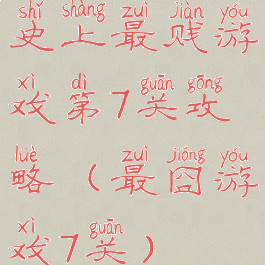 shǐ shàng zuì jiàn yóu
史上最贱游
xì dì guān gōng
戏第7关攻
lüè zuì jiǒng yóu
略（最囧游
xì guān
戏7关）